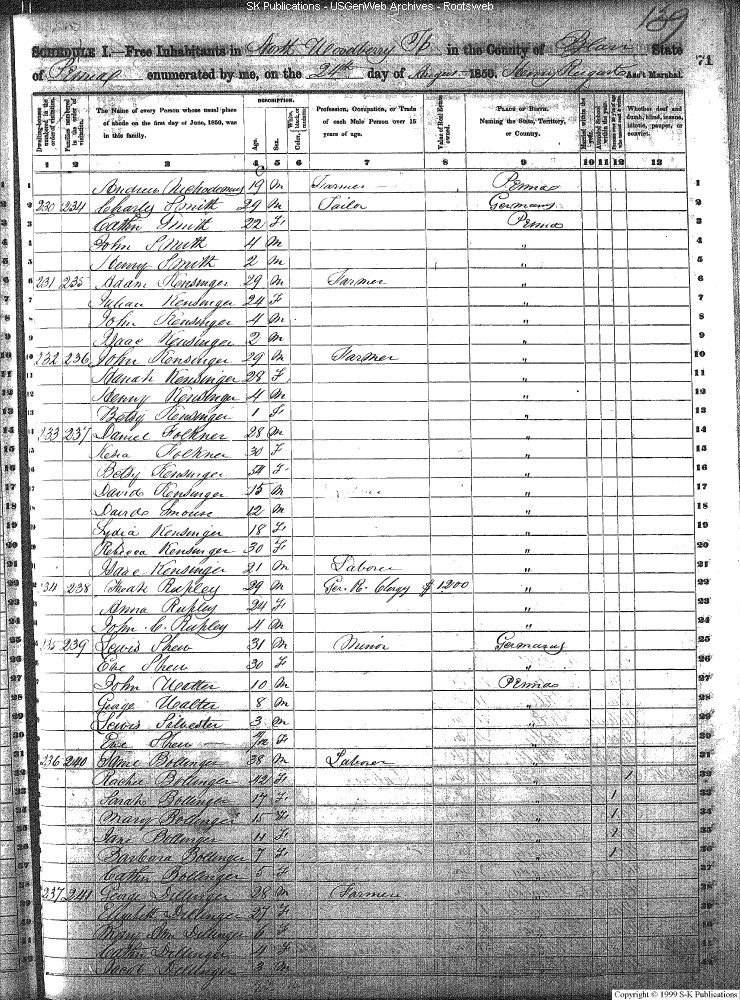 SK Publications - USGenWeb Archives - Rootsweb
139
SCHEDULE I.—Free Inhabitants in North Woodberry T/p in the County of Blair State
of Penna enumerated by me, on the 24th day of August 1850. Henry Ass't Marshal.
71
DESCRIPTION.
Dwelling-houses numbered in the order of visitation.
Families numbered in the order of visitation.
The Name of every Person whose usual place of abode on the first day of June, 1850, was in this family.
Age.
Sex.
Color, White, black, or mulatto.
Profession, Occupation, or Trade of each Male Person over 15 years of age.
Value of Real Estate owned.
PLACE OF BIRTH. Naming the State, Territory, or Country.
Married within the year.
Attended School within the year.
Whether deaf and dumb, blind, insane, idiotic, pauper, or convict.
1 2 3 4 5 6 7 8 9 10 11 12 13
1 Andrew 19 M Farmer Penna 1
2 230 234 Charly Smith 29 M Tailor Germany 2
3 Cathn Smith 22 F Penna 3
4 John Smith 4 M " 4
5 Henry Smith 2 M " 5
6 231 235 Adam Kensinger 29 M Farmer " 6
7 Julian Kensinger 24 F " 7
8 John Kensinger 4 M " 8
9 Isaac Kensinger 2 M " 9
10 232 236 John Kensinger 29 M Farmer " 10
11 Hanah Kensinger 28 F " 11
12 Henry Kensinger 4 M " 12
13 Betsy Kensinger 1 F " 13
14 233 237 Daniel Folkner 28 M " 14
15 Folkner 30 F " 15
16 Betsy Kensinger F " 16
17 David Kensinger 15 M " 17
18 David Smouse 12 M " 18
19 Lydia Kensinger 18 F " 19
20 Rebecca Kensinger 30 F " 20
21 Isaac Kensinger 21 M Laborer " 21
22 234 238 Rupley 29 M Ger. R. Clergy $1200 " 22
23 Anna Rupley 24 F " 23
24 John C. Rupley 4 M " 24
25 235 239 Lewis Shew 31 M Minor Germany 25
26 Eve Shew 30 F " 26
27 John Walter 10 M Penna 27
28 George Walter 8 M " 28
29 Lewis Silvester 3 M " 29
30 Eve Shew F " 30
31 236 240 Bollinger 38 M Laborer " 31
32 Bollinger 42 F " 1
33 Sarah Bollinger 17 F " 1
34 Mary Bollinger 15 F " 1
35 Jane Bollinger 11 F " 1
36 Barbara Bollinger 7 F " 1
37 Cathn Bollinger 5 F "
38 237 241 George Dillinger 28 M Farmer "
39 Elizabeth Dillinger 27 F "
40 Mary Ann Dillinger 6 F "
41 Cathn Dillinger 4 F "
42 Jacob Dillinger 3 M "
Copyright © 1999 S-K Publications